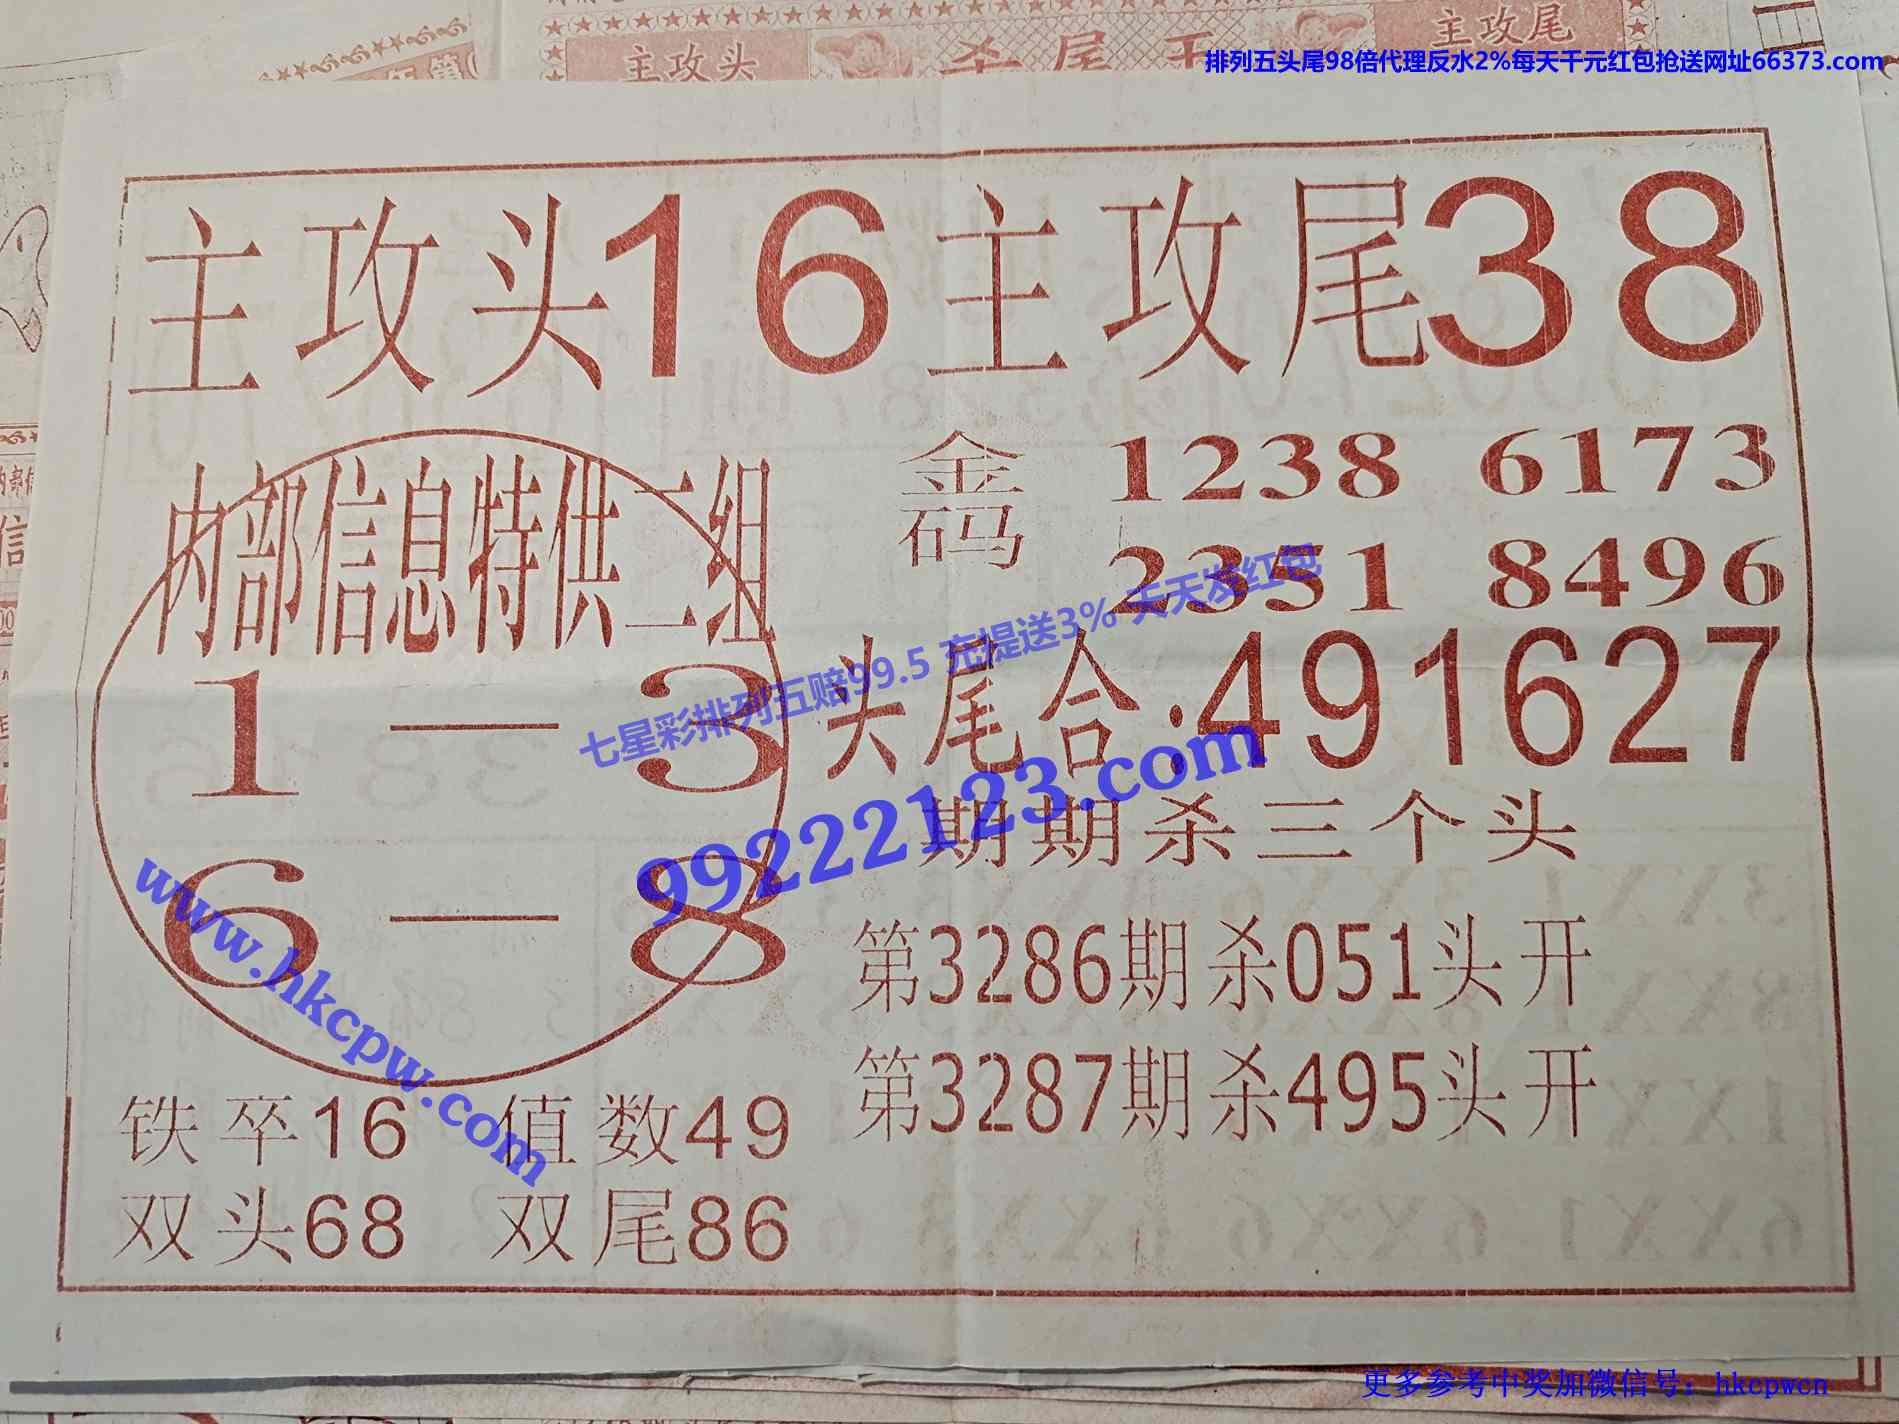 主攻头
主攻尾
排列五头尾98倍代理反水2%每天千元红包抢送网址66373.com
主攻头16主攻尾38
内部信息特供二组
金码 1238 6173
2351 8496
七星彩排列五赔99.5 充提送3% 天天发红包
1—3
头尾合:491627
99222123.com
期期杀三个头
6—8
www.hkcpw.com
第3286期杀051头开
第3287期杀495头开
铁卒16 值数49
双头68 双尾86
更多参考中奖加微信号：hkcpwcn